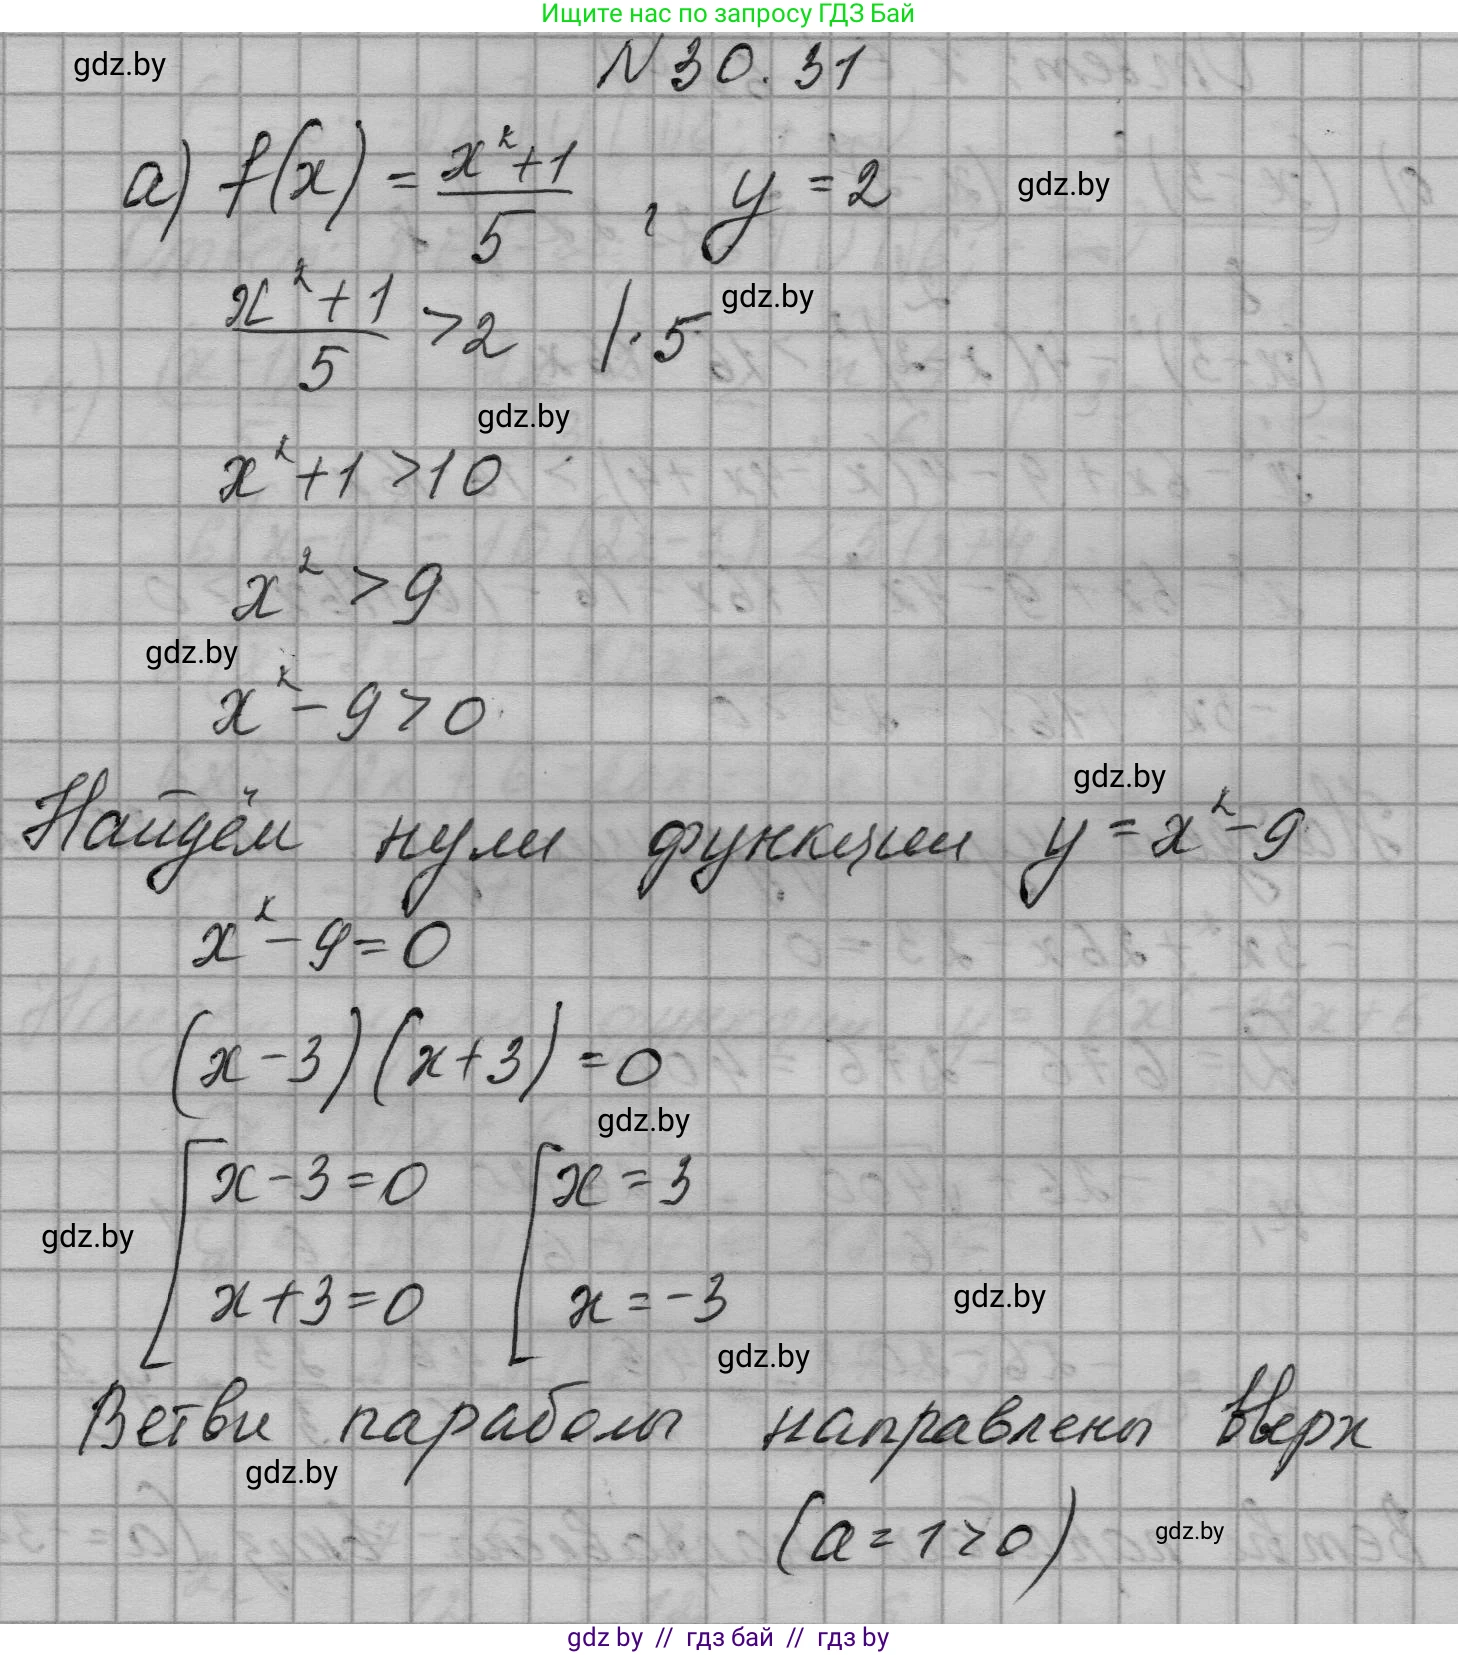 Ищите нас по запросу ГДЗ Бай
gdz.by
N 30.31
а) f(x) = (x²+1)/5 , y = 2
gdz.by
(x²+1)/5 > 2 | · 5
gdz.by
gdz.by
x² + 1 > 10
x² > 9
gdz.by
x² - 9 > 0
gdz.by
Найдём нули функции y = x² - 9
x² - 9 = 0
(x - 3)(x + 3) = 0
gdz.by
x - 3 = 0 x = 3
gdz.by
x + 3 = 0 x = -3
gdz.by
gdz.by
Ветви параболы направлены вверх
gdz.by
(a = 1 > 0)
gdz.by
gdz by // гдз бай // гдз by